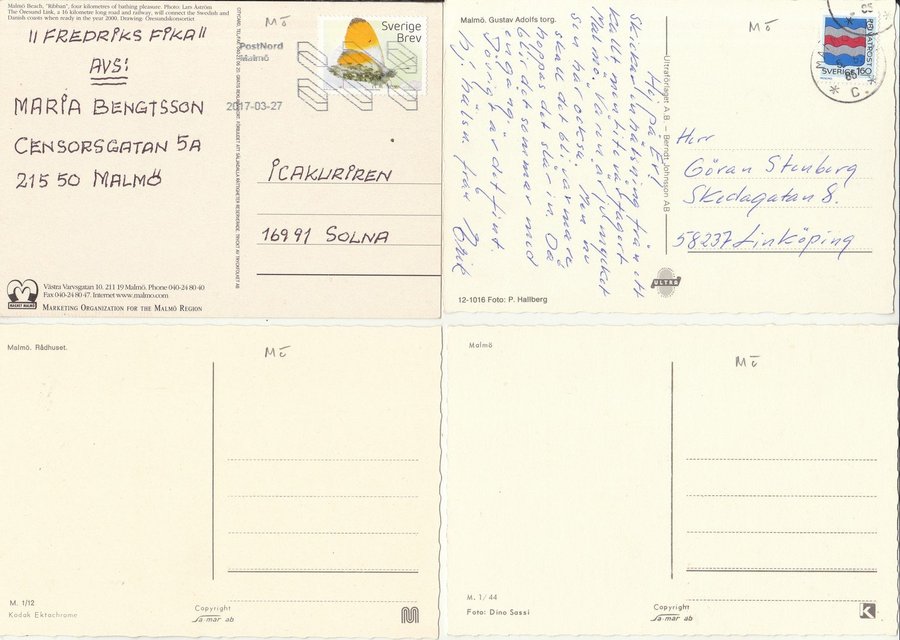 Malmö Beach, "Ribban", four kilometres of bathing pleasure. Photo: Lars Aström
The Öresund Link, a 16 kilometre long road and railway, will connect the Swedish and
Danish coasts when ready in the year 2000. Drawing: Öresundskonsortiet
Mö
"FREDRIKS FIKA"
AVS:
MARIA BENGTSSON
CENSORSGATAN 5A
215 50 MALMÖ
PostNord
Malmö
2017-03-27
Sverige
Brev
ICAKURIREN
16991 SOLNA
Västra Varvsgatan 10. 211 19 Malmö. Phone 040-24 80 40
Fax 040-24 80 47. Internet www.malmo.com
MARKETING ORGANIZATION FOR THE MALMÖ REGION
Malmö. Gustav Adolfs torg.
Mö
SVERIGE 160
Hej på Er!
Skickar en hälsning från ett
kallt men
Malmö.
Sön har också. Men vi
hoppas det slår in. Då
skall det bli varmare
blir det sommar med
en gång.
Övrigt är det fint.
Hej hälsn. från
Ultraförlaget A.B – Berndt Johnsson AB
Herr
Göran Stenberg
Skedagatan 8.
58237 Linköping
ULTRA
12-1016 Foto: P. Hallberg
Malmö. Rådhuset.
Mö
M. 1/12
Kodak Ektachrome
Copyright
sa-mar ab
Malmö
Mö
M. 1/44
Foto: Dino Sassi
Copyright
sa-mar ab
K